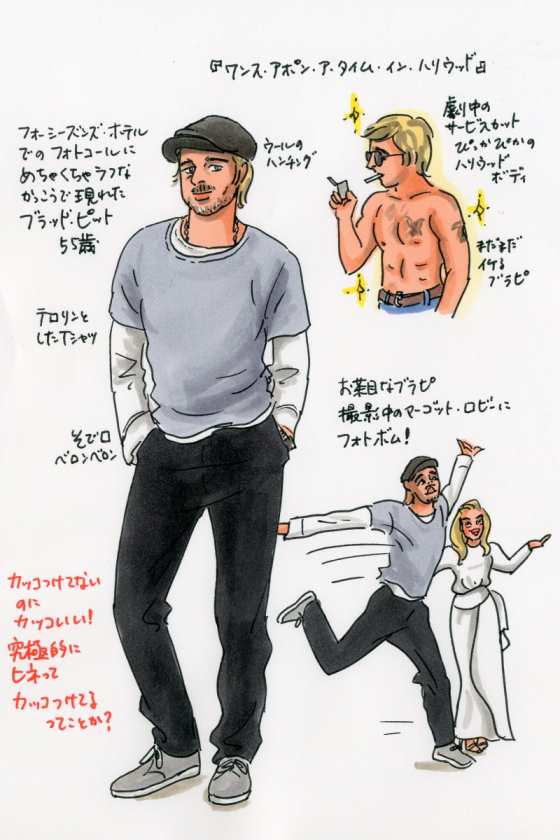 『ワンス・アポン・ア・タイム・イン・ハリウッド』
フォーシーズンズ・ホテル
でのフォトコールに
めちゃくちゃラフな
かっこうで現れた
ブラッド・ピット
55歳
ウールの
ハンチング
劇中の
サービスカット
ぴっかぴかの
ハリウッド
ボディ
まだまだ
イケる
ブラピ
テロリンと
したTシャツ
そで口
ベロンベロン
お茶目なブラピ
撮影中のマーゴット・ロビーに
フォトボム！
カッコつけてない
のに
カッコいい！
究極的に
ヒネって
カッコつけてる
ってことか？